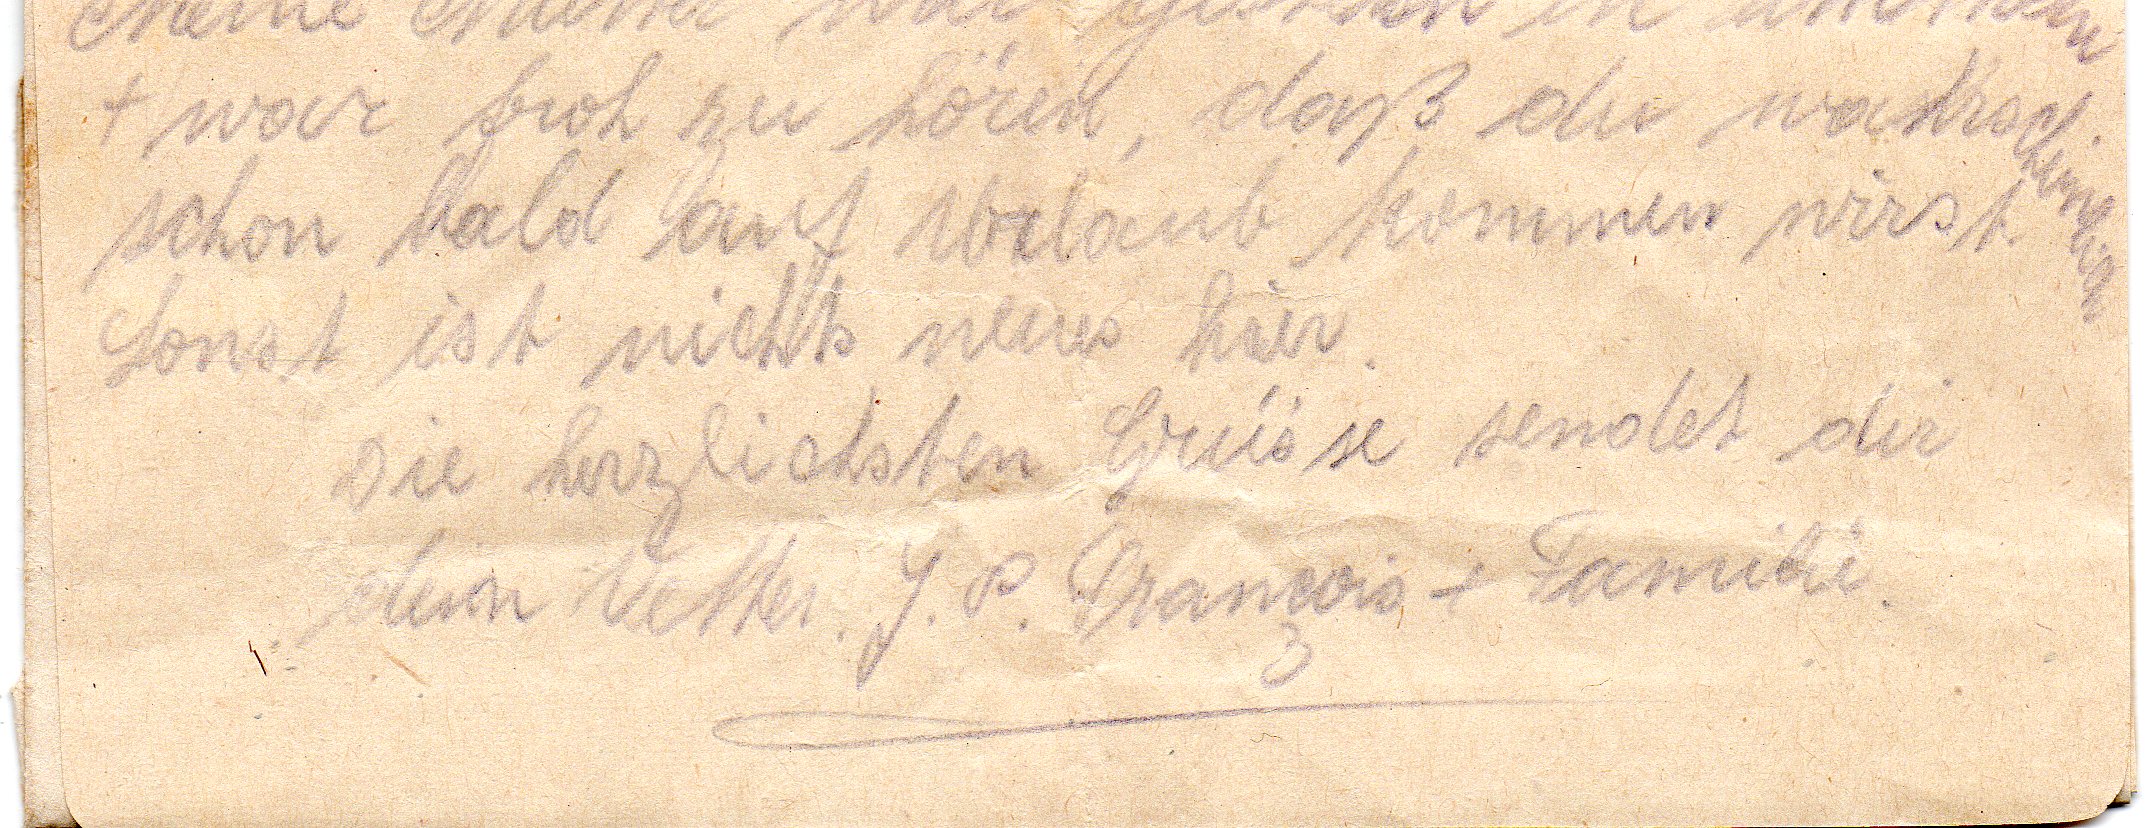 Meine Mutter war gestern in
+ war froh zu hören, daß du wahrscheinlich
schon bald auf Urlaub kommen wirst
Sonst ist nichts neues hier.
Die herzlichsten Grüsse sendet dir
dein Vetter. J. P. François + Familie.